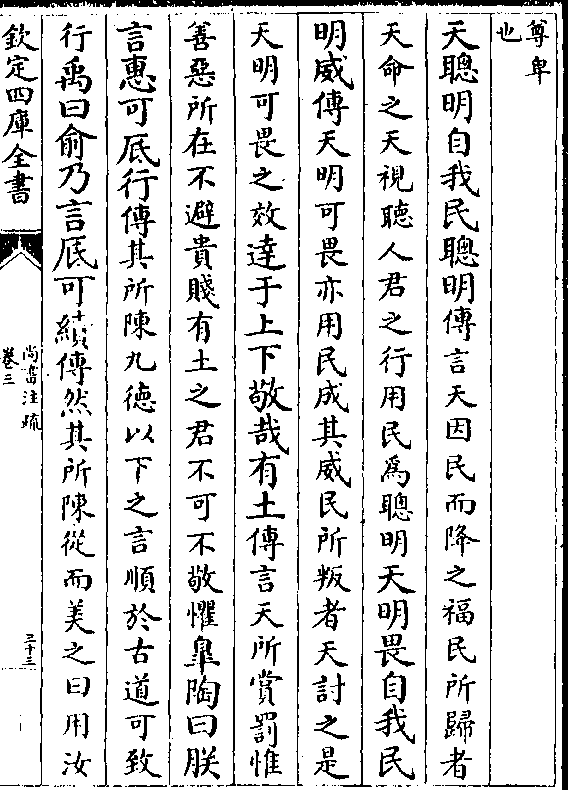 尊卑
也
天聰明自我民聰明傳言天因民而降之福民所歸者
天命之天視聽人君之行用民爲聰明天明畏自我民
明威傳天明可畏亦用民成其威民所叛者天討之是
天明可畏之效達于上下敬哉有土傳言天所賞罰惟
善惡所在不避貴賤有土之君不可不敬懼臯陶曰朕
言惠可厎行傳其所陳九德以下之言順於古道可致
行禹曰俞乃言厎可績傳然其所陳從而美之曰用汝
欽定四庫全書
尚書注疏
卷三
三十三